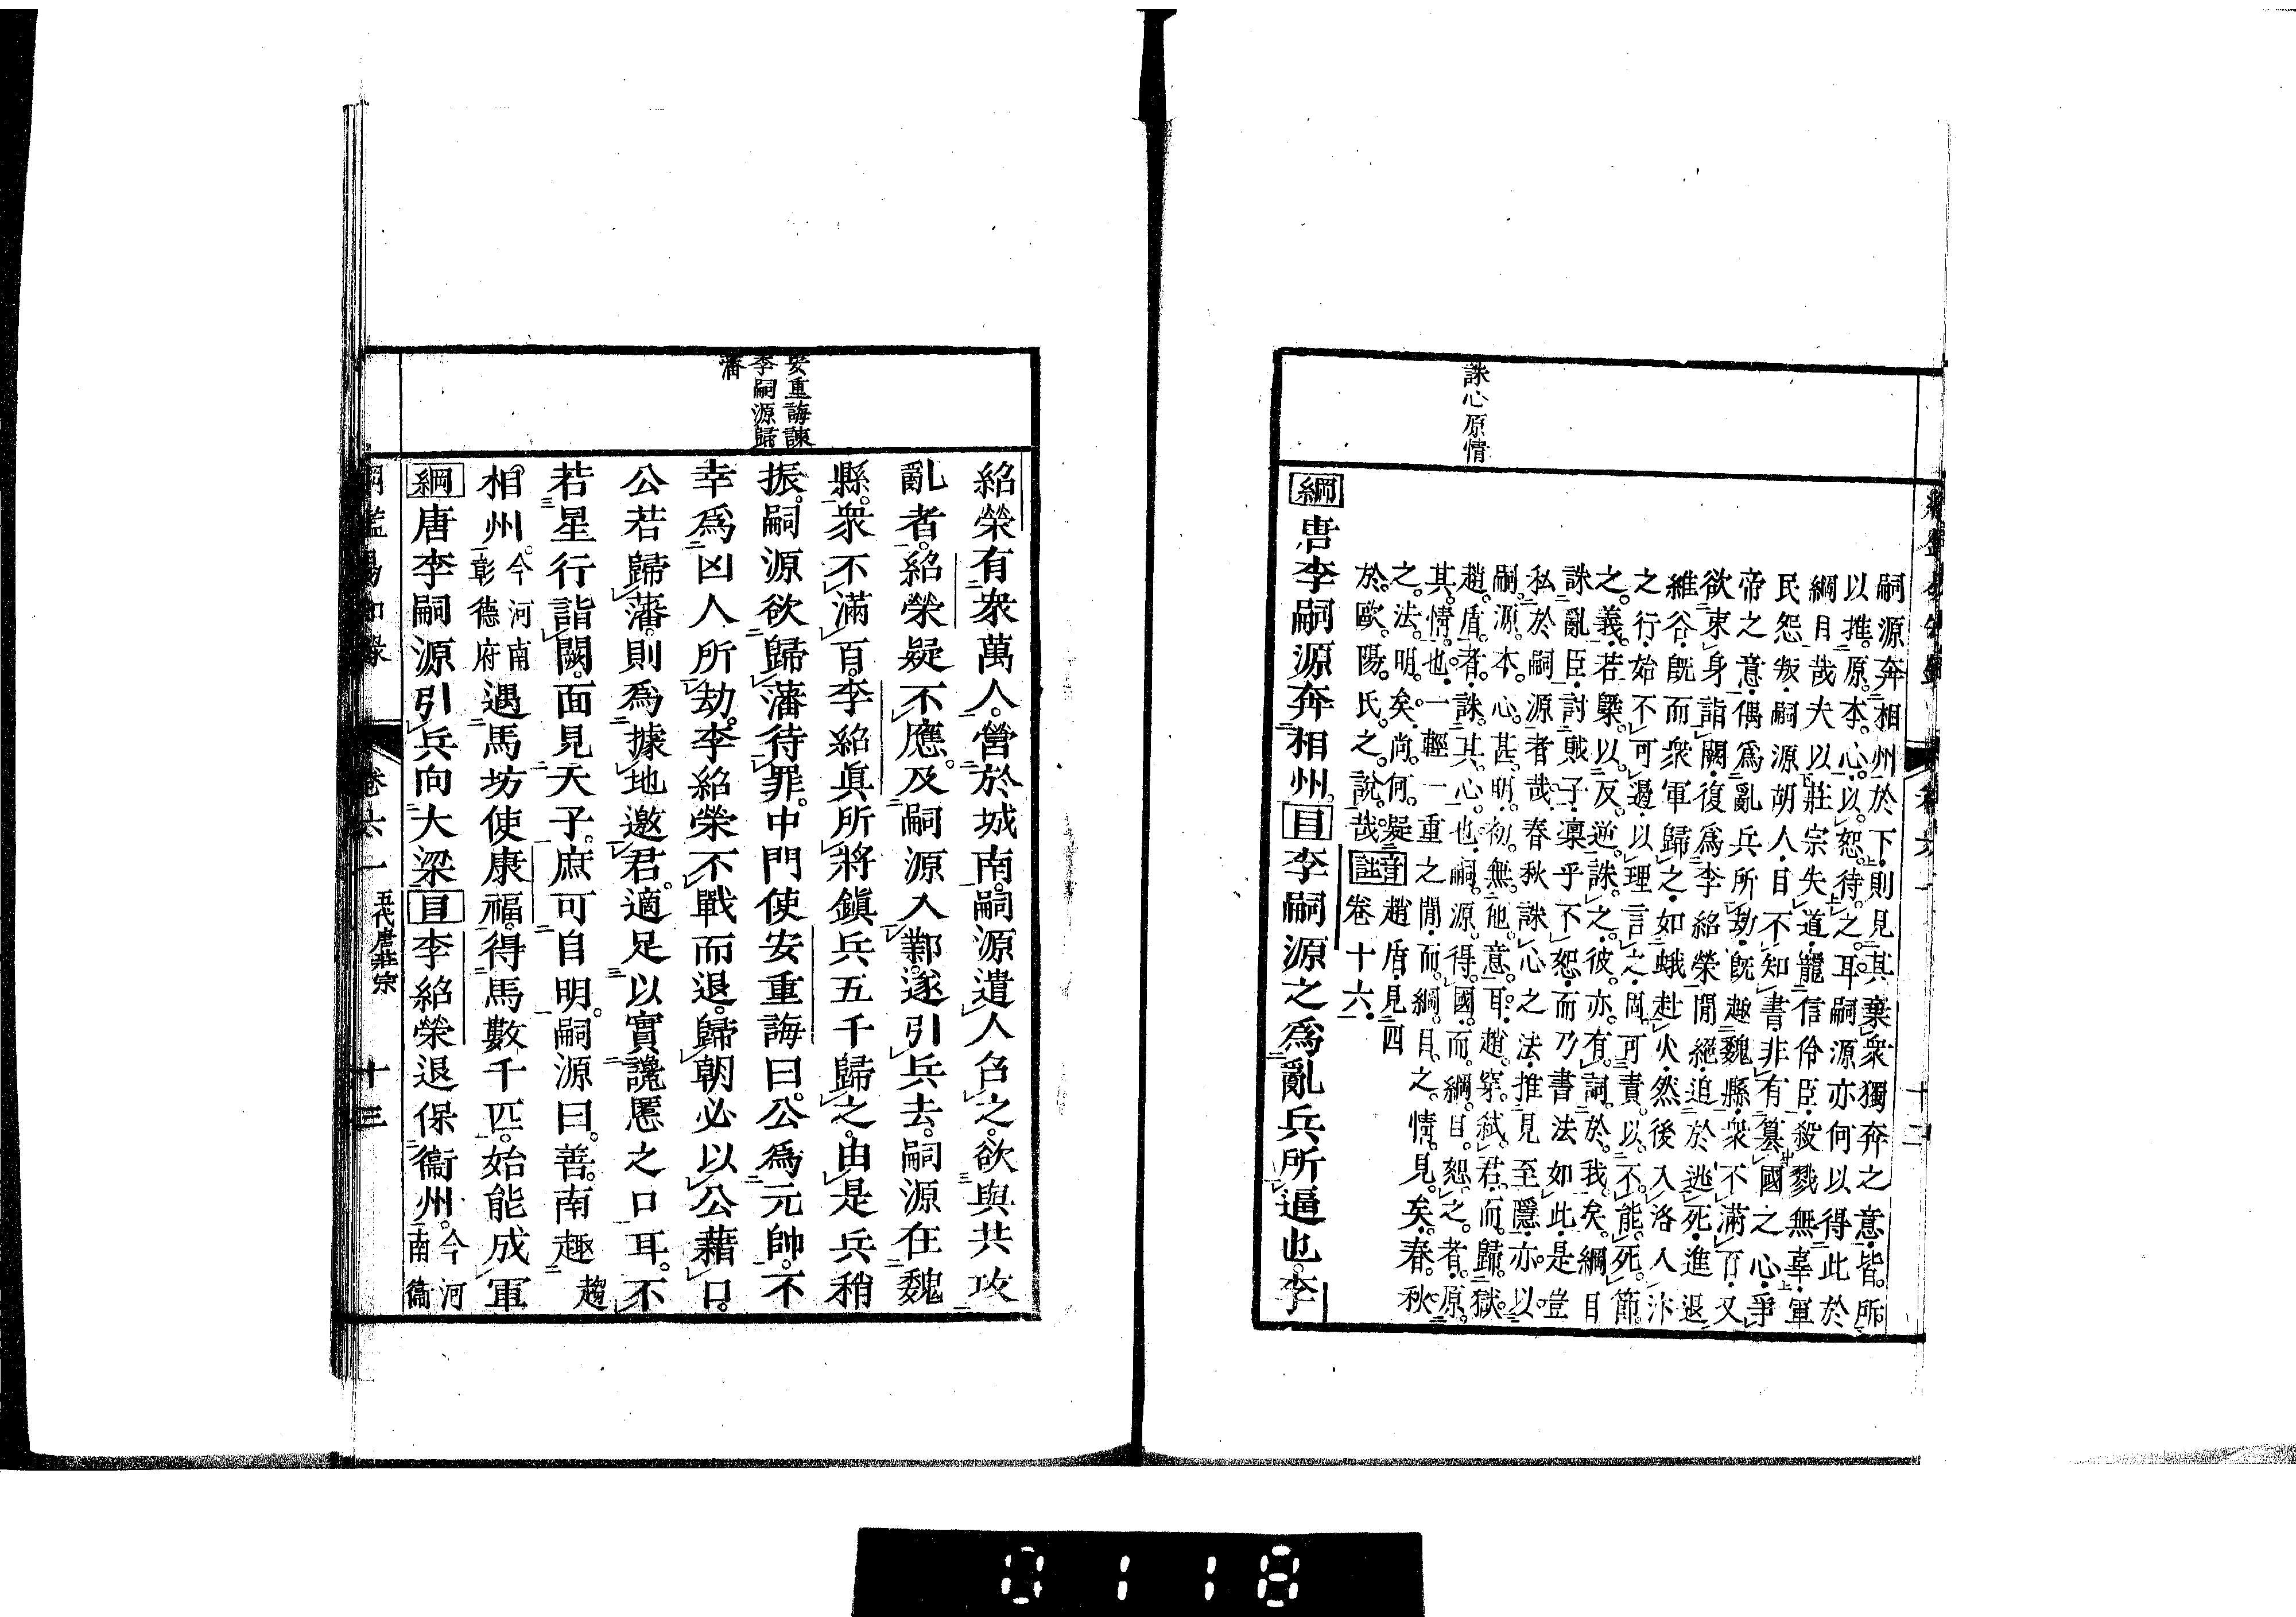 誅心原情
嗣源奔相州於下則見其棄衆獨奔之意皆所
以推原本心以恕待之耳嗣源亦何以得此於
綱目哉夫以莊宗失道寵信伶臣殺戮無辜軍
民怨叛嗣源胡人目不知書非有簒國之心爭
帝之意偶爲亂兵所劫既趣魏縣衆不滿百又
欲束身詣闕復爲李紹榮閒絕追於逃死進退
維谷既而衆軍歸之如蛾赴火然後入洛入汴
之行始不可遏以理言之固可責以不能死節
之義若槩以反逆誅之彼亦有詞於我矣綱目
誅亂臣討賊子凛乎不恕而乃書法如此是豈
私於嗣源者哉春秋誅心之法推見至隱亦以
嗣源本心甚明初無他意耳趙穿弑君而歸獄
趙盾者誅其心也嗣源得國而綱目恕之者原
其情也一輕一重之閒而綱目之情見矣春秋
之法明矣尚何疑 音 趙盾見四
於歐陽氏之說哉 註 卷十六
綱 唐李嗣源奔相州 目 李嗣源之爲亂兵所逼也李
安重誨諫
李嗣源歸
藩
紹榮有衆萬人營於城南嗣源遣人召之欲與共攻
亂者紹榮疑不應及嗣源入鄴遂引兵去嗣源在魏
縣衆不滿百李紹眞所將鎭兵五千歸之由是兵稍
振嗣源欲歸藩待罪中門使安重誨曰公爲元帥不
幸爲凶人所劫李紹榮不戰而退歸朝必以公藉口
公若歸藩則爲據地邀君適足以實讒慝之口耳不
若星行詣闕面見天子庶可自明嗣源曰善南趣 趨
相州 今河南彰德府 遇馬坊使康福得馬數千匹始能成軍
綱 唐李嗣源引兵向大梁 目 李紹榮退保衞州 今河南衞
卷六一 五代唐莊宗 十三